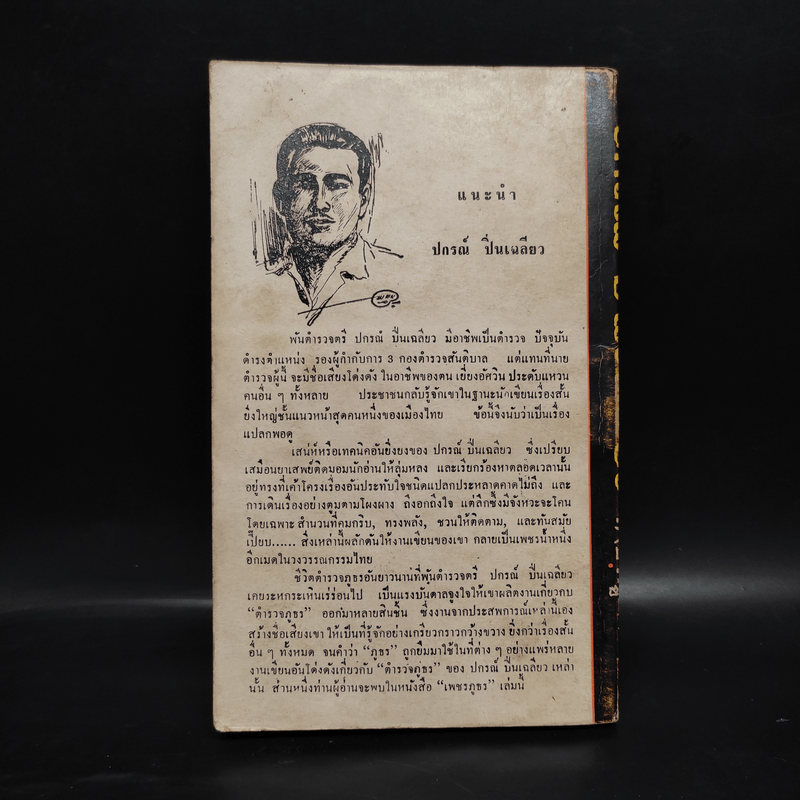 แนะนำ
ปกรณ์ ปิ่นเฉลียว
พันตำรวจตรี ปกรณ์ ปิ่นเฉลียว มีอาชีพเป็นตำรวจ ปัจจุบัน
ดำรงตำแหน่ง รองผู้กำกับการ 3 กองตำรวจสันติบาล แต่แทนที่นาย
ตำรวจผู้นี้ จะมีชื่อเสียงโด่งดัง ในอาชีพของตน เยี่ยงอัศวิน ประดับแหวน
คนอื่น ๆ ทั้งหลาย ประชาชนกลับรู้จักเขาในฐานะนักเขียนเรื่องสั้น
ยิ่งใหญ่ชั้นแนวหน้าสุดคนหนึ่งของเมืองไทย ข้อนี้จึงนับว่าเป็นเรื่อง
แปลกพอดู
เสน่ห์หรือเทคนิคอันยิ่งยงของ ปกรณ์ ปิ่นเฉลียว ซึ่งเปรียบ
เสมือนยาเสพย์ติดมอมนักอ่านให้ลุ่มหลง และเรียกร้องหาตลอดเวลานั้น
อยู่ทรงที่เค้าโครงเรื่องอันประทับใจชนิดแปลกประหลาดคาดไม่ถึง และ
การเดินเรื่องอย่างตูมตามโผงผาง ถึงอกถึงใจ แต่ลึกซึ้งมีจังหวะจะโคน
โดยเฉพาะ สำนวนที่คมกริบ, ทรงพลัง, ชวนให้ติดตาม, และทันสมัย
เปี๊ยบ...... สิ่งเหล่านี้ผลักดันให้งานเขียนของเขา กลายเป็นเพชรน้ำหนึ่ง
อีกเม็ดในวงวรรณกรรมไทย
ชีวิตตำรวจภูธรอันยาวนานที่พันตำรวจตรี ปกรณ์ ปิ่นเฉลียว
เคยระหกระเหินเร่ร่อนไป เป็นแรงบันดาลจูงใจให้เขาผลิตงานเกี่ยวกับ
“ตำรวจภูธร” ออกมาหลายสิบชิ้น ซึ่งงานจากประสพการณ์เหล่านี้เอง
สร้างชื่อเสียงเขา ให้เป็นที่รู้จักอย่างเกรียวกราวกว้างขวาง ยิ่งกว่าเรื่องสั้น
อื่น ๆ ทั้งหมด จนคำว่า “ภูธร” ถูกยืมมาใช้ในที่ต่าง ๆ อย่างแพร่หลาย
งานเขียนอันโด่งดังเกี่ยวกับ “ตำรวจภูธร” ของ ปกรณ์ ปิ่นเฉลียว เหล่า
นั้น ส่วนหนึ่งท่านผู้อ่านจะพบในหนังสือ “เพชรภูธร” เล่มนี้